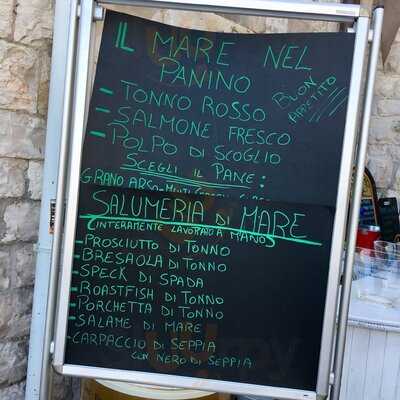 IL MARE NEL
PANINO
BUON
APPETITO
- TONNO ROSSO
- SALMONE FRESCO
- POLPO DI SCOGLIO
SCEGLI IL PANE:
GRANO ARSO-MULTICEREALI
SALUMERIA DI MARE
(INTERAMENTE LAVORATO A MANO)
- PROSCIUTTO DI TONNO
- BRESAOLA DI TONNO
- SPECK DI SPADA
- ROASTFISH DI TONNO
- PORCHETTA DI TONNO
- SALAME DI MARE
- CARPACCIO DI SEPPIA
CON NERO DI SEPPIA